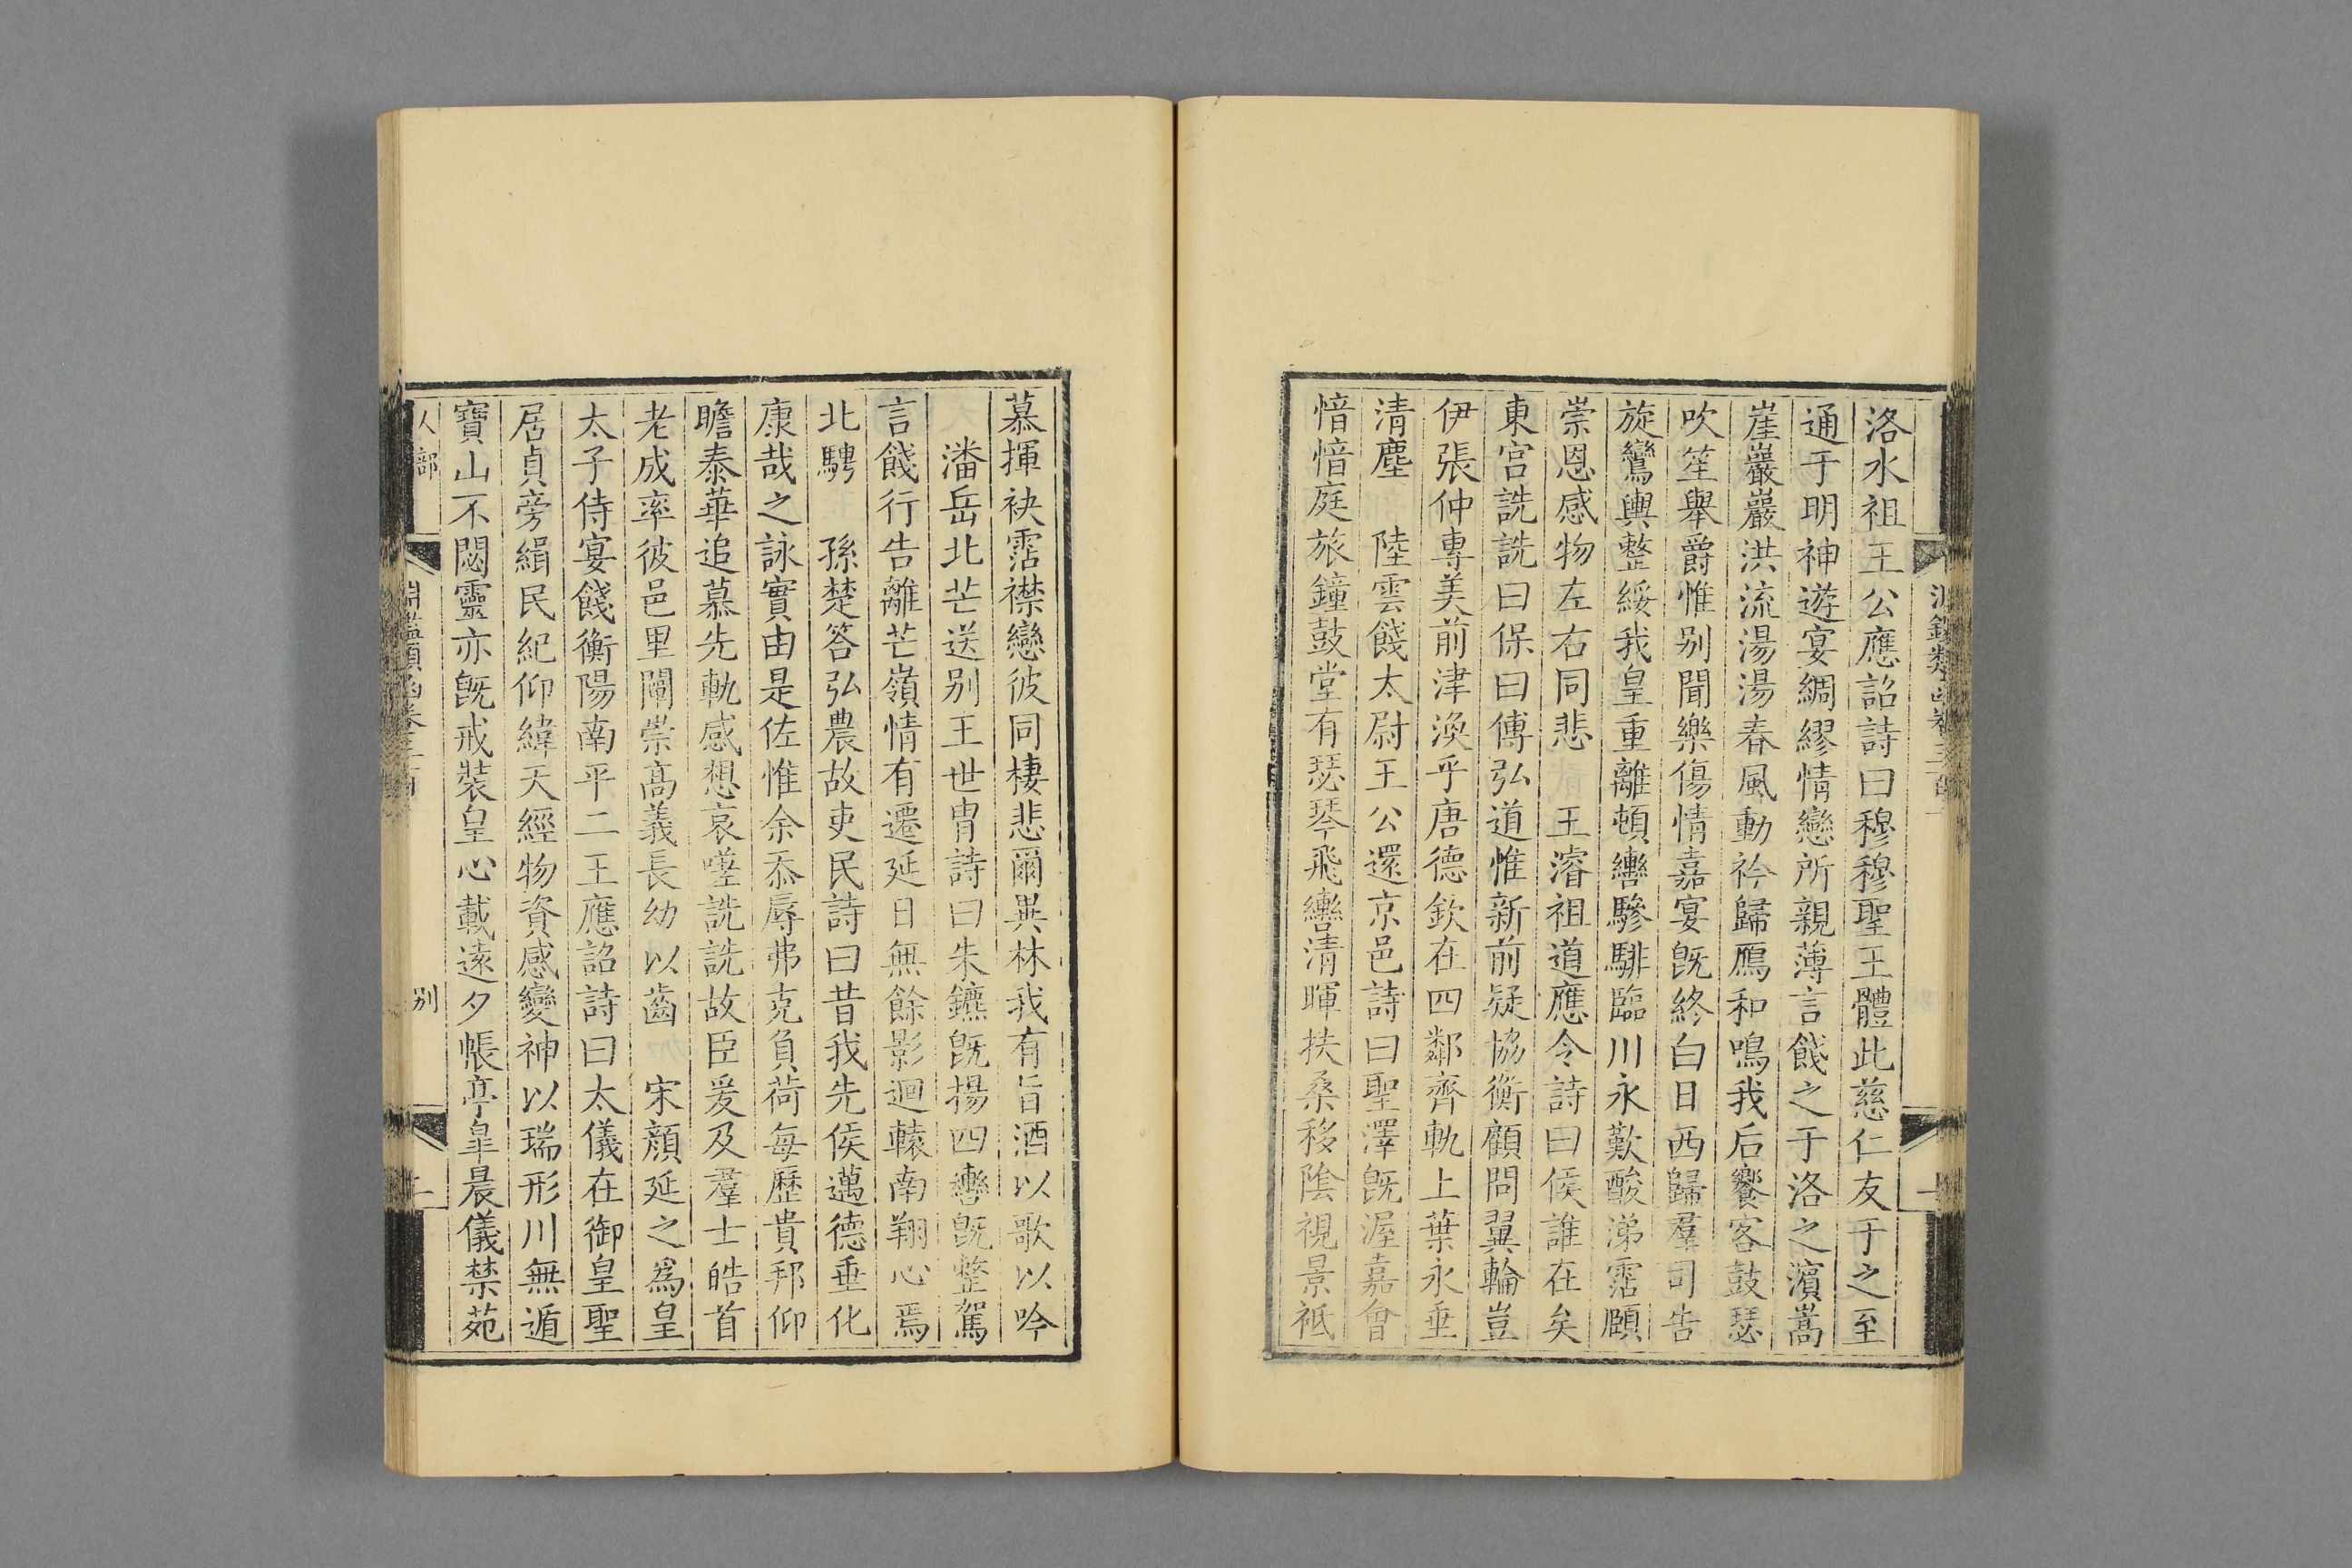 洛水祖王公應詔詩曰穆穆聖王體此慈仁友于之至
通于明神遊宴綢繆情戀所親薄言餞之于洛之濵嵩
崖巖巖洪流湯湯春風動衿歸鴈和鳴我后饗客鼓瑟
吹笙舉爵惟别聞樂傷情嘉宴旣終白日西歸羣司告
旋鸞輿整綏我皇重離頓轡驂騑臨川永歎酸涕霑頥
崇恩感物左右同悲　王濬祖道應令詩曰侯誰在矣
東宫詵詵曰保曰傅弘道惟新前疑協衡顧問翼輪豈
伊張仲専美前津渙乎唐德欽在四鄰齊軌上葉永垂
清塵　陸雲餞太尉王公還京邑詩曰聖澤旣渥嘉會
愔愔庭旅鐘鼓堂有瑟琴飛轡清暉扶桑移陰視景祇
慕揮袂霑襟戀彼同棲悲爾異林我有旨酒以歌以吟
潘岳北芒送别王世冑詩曰朱鑣旣揚四轡旣整駕
言餞行告離芒嶺情有遷延日無餘影迴轅南翔心焉
北騁　孫楚答弘農故吏民詩曰昔我先侯邁德垂化
康哉之詠實由是佐惟余忝辱弗克負荷每歷貴邦仰
瞻泰華追慕先軌感想哀嗟詵詵故臣爰及羣士皓首
老成率彼邑里闡崇髙義長幼以齒　宋顔延之爲皇
太子侍宴餞衡陽南平二王應詔詩曰太儀在御皇聖
居貞旁緝民紀仰緯天經物資感變神以瑞形川無遁
寳山不閟靈亦旣戒裝皇心載遠夕帳亭臯晨儀禁苑
人部
别
二